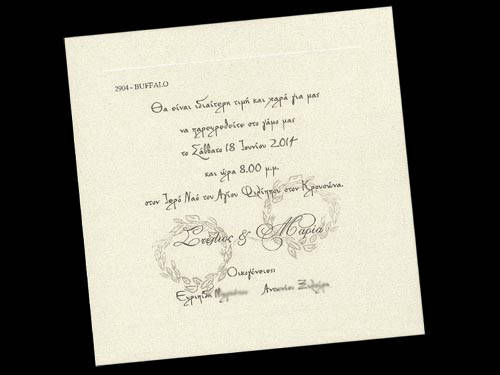 2904 - BUFFALO
Θα είναι ιδιαίτερη τιμή και χαρά για μας
να παρευρεθείτε στο γάμο μας
το Σάββατο 18 Ιουνίου 2014
και ώρα 8.00 μ.μ.
στον Ιερό Ναό του Αγίου Φιλίππου στον Κρουσώνα.
Στέλιος & Μαρία
Οικογένειες
Ευριπίδη Αντωνίου